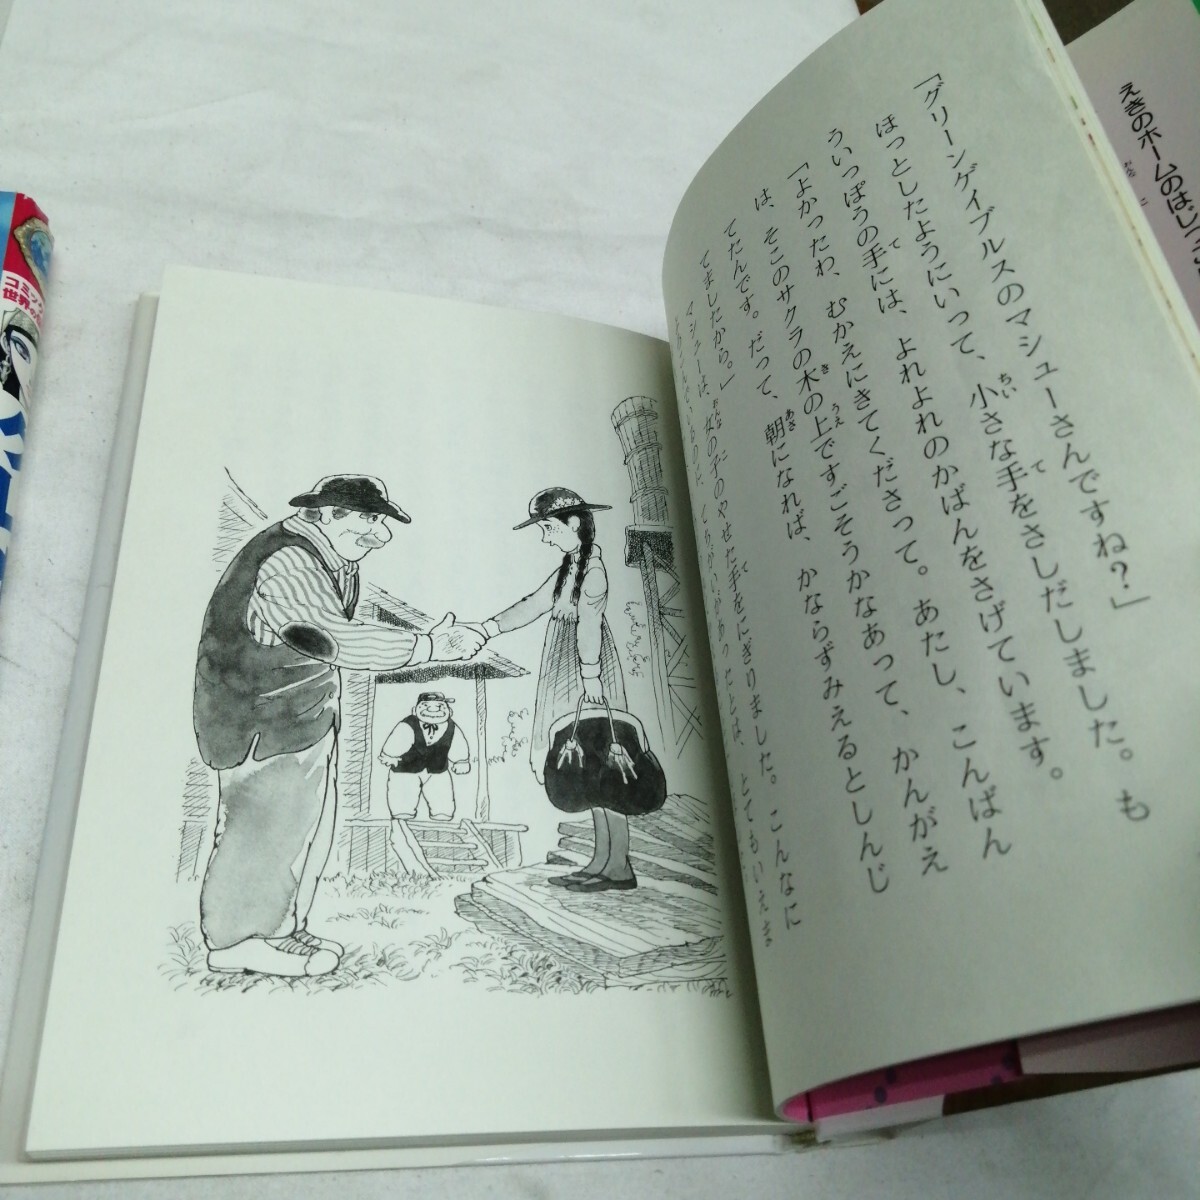 「グリーンゲイブルスのマシューさんですね？」
ほっとしたようにいって、小さな手をさしだしました。も
ういっぽうの手には、よれよれのかばんをさげています。
「よかったわ、むかえにきてくださって。あたし、こんばん
は、そこのサクラの木の上ですごそうかなあって、かんがえ
てたんです。だって、朝になれば、かならずみえるとしんじ
てましたから。」
マシューは、女の子のやせた手をにぎりました。こんなに
えきのホームのはし
コミッ
世界の